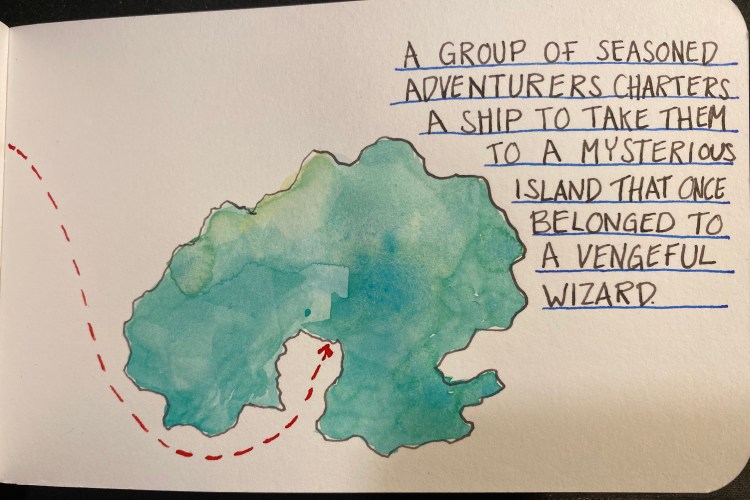 A GROUP OF SEASONED
ADVENTURERS CHARTERS
A SHIP TO TAKE THEM
TO A MYSTERIOUS
ISLAND THAT ONCE
BELONGED TO
A VENGEFUL
WIZARD.